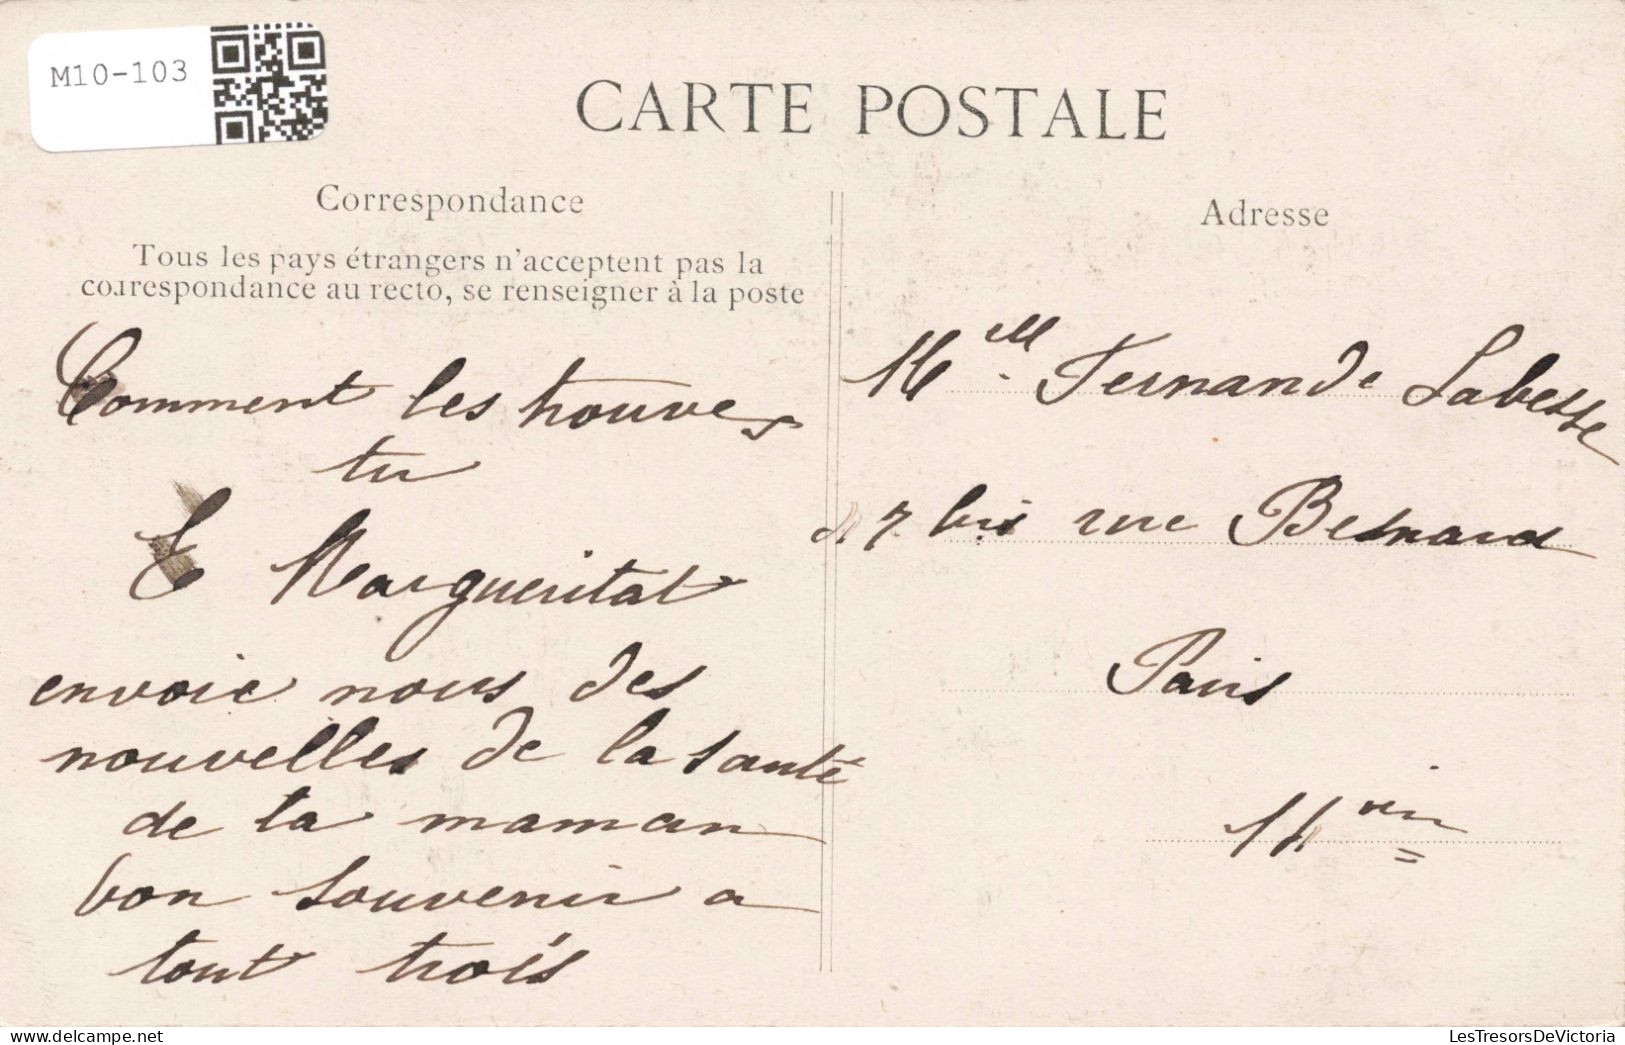 M10-103
CARTE POSTALE
Correspondance
Tous les pays étrangers n'acceptent pas la
correspondance au recto, se renseigner à la poste
Comment les trouves
tu
E Margueritat
envoie nous des
nouvelles de la santé
de ta maman
bon souvenir a
tout trois
Adresse
Mlle Fernande Labesse
7 bis rue Besnard
Paris
LesTresorsDeVictoria